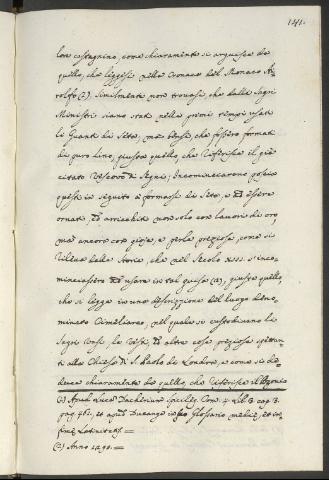 141.
lor castagnino, come chiaramente si arguisce da
quello, che leggesi nella Cronaca del Monaco A
rolfo (1). Similmente non trovasi, che dalli Sagri
Ministri siano stati nelli primi tempi usati
li Guanti di Seta, ma bensì, che fossero formati
di puro lino, giusta quello, che riferisce il già
citato Vescovo di Segni; Incominciarono poscia
questi in seguito a formarsi di Seta, e ad essere
ornati, ed arricchiti non solo con lavori di oro
ma ancora con gioje, e perle preziose, come si
rileva dalla Storia, che nel Secolo XIII. s'inco,
minciassero ad usare in tal guisa (2), giusta quello,
che si legge in una descrizione del luogo deno,
minato Cimeliarca, nel quale si custodivano li
Sagri Vasi, le Vesti, ed altre cose preziose spettan
ti alla Chiesa di S. Paolo di Londra, e come si de
duce chiaramente da quello, che riferisce il
(1) Apud Luca Dacherium Spicileg. Tom. 4. Lib. 3. cap. 3.
pag. 461. et apud Ducange in suo Glossario mediæ, et in,
fimæ Latinitatis.
(2) Anno 1290.